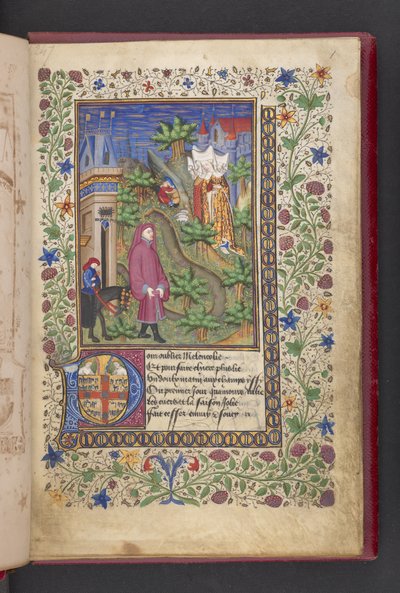 Pour oublier Melencolie
Et pour faire chiere plus lie
Un doulx matin aux champs yssy
Ou premier jour quamours ralie
Les cuers et la saison jolie
Fait cesser ennuy & soucy